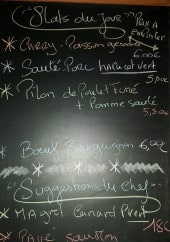 Plats du jour
Prix A
emporter
* Curry - Poisson grenadier
6,00€
* Sauté Porc haricot vert
5,00€
* Pilon de Poulet fumé
+ Pomme sauté
5,50€
* Boeuf Bourguignon 6,00€
Suggestion du chef
* Magret Canard Pvert
18€
* Pavé saumon